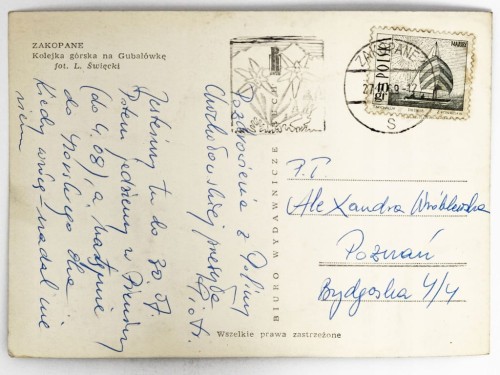 ZAKOPANE
Kolejka górska na Gubałówkę
fot. L. Święcki
Pozdrowienia z Doliny
Chochołowskiej
Jesteśmy tu do 30.07
Potem jedziemy w Pieniny
(do 4.08), a następnie
do
Kiedy wrócę - nadal nie
wiem
BIURO WYDAWNICZE RUCH
ZAKOPANE
POLSKA
P.T.
Alexandra Wróblewska
Poznań
Bydgoska 4/4
Wszelkie prawa zastrzeżone